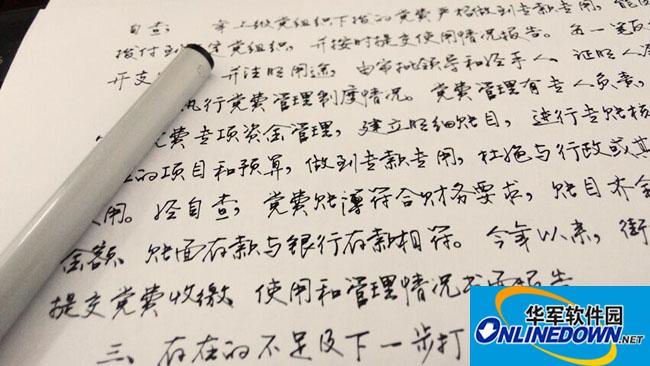 自查，拿上级党组织下拨的党费严格做到专款专用，能
拨付到 党组织，并按时提交使用情况报告。
开支 并注明用途，由审批领导和经手人、证明人
执行党费管理制度情况。党费管理有专人负责，
党费专项资金管理，建立明细账目，进行专账核
的项目和预算，做到专款专用，杜绝与行政或其
用。经自查，党费账簿符合财务要求，账目本金
金额、账面存款与银行存款相符。今年以来，街
提交党费收缴、使用和管理情况书面报告
三、存在的不足及下一步打
华军软件园
ONLINEDOWN.NET